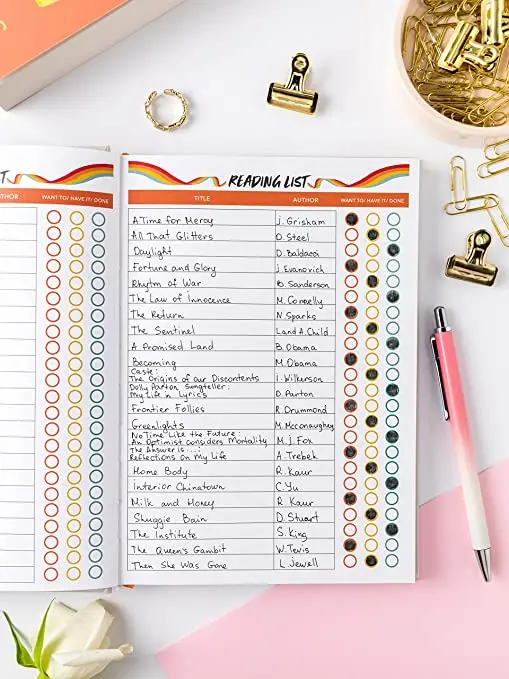 ST
THOR
WANT TO/ HAVE IT/ DONE
READING LIST
TITLE AUTHOR WANT TO/ HAVE IT/ DONE
A Time for Mercy J. Grisham
All That Glitters D. Steel
Daylight D. Baldacci
Fortune and Glory J. Evanovich
Rhytm of War B. Sanderson
The Law of Innocence M. Connelly
The Return N. Sparks
The Sentinel L and A. Child
A Promised Land B. Obama
Becoming M. Obama
Caste:
The Origins of our Discontents I. Wilkerson
Dolly Parton Songteller:
My Life in Lyrics D. Parton
Frontier Follies R. Drummond
Greenlights M. Mcconaughey
No Time Like the Future:
An Optimist Considers Mortality M. J. Fox
The Answer is ...:
Reflections on My Life A. Trebek
Home Body R. Kaur
Interior Chinatown C. Yu
Milk and Honey R Kaur
Shuggie Bain D. Stuart
The Institute S. King
The Queen's Gambit W. Tevis
Then She Was Gone L. Jewell